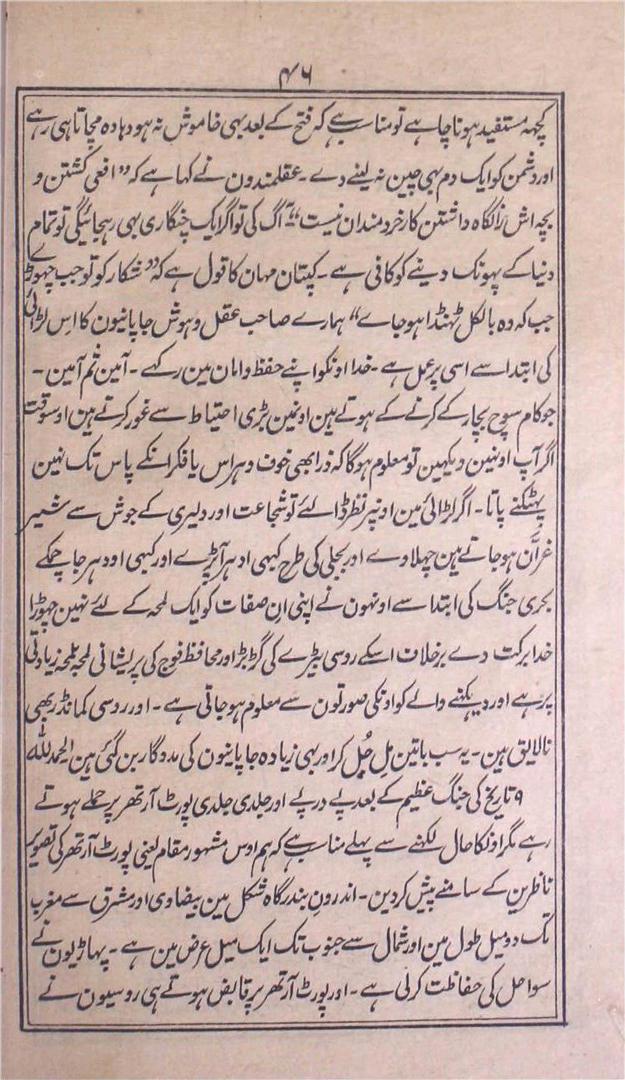 ۴۶
کچہہ مستفید ہونا چاہے تو مناسب ہے کہ فتح کے بعد بہی خاموش نہ ہو دہاوہ مچاتا ہی رہے
اور دشمن کو ایک دم بہی چین نہ لینے دے ۔ عقلمندون نے کہا ہے کہ ”افعی کشتن و
بچہ اش را نگاہ داشتن کار خردمندان نیست“ آگ کی تو اگر ایک چنگاری بہی رہجائیگی تو تمام
دنیا کے پہونک دینے کو کافی ہے ۔ کپتان مہان کا قول ہے کہ ”شکار کو تو جب چہوڑے
جب کہ وہ بالکل ٹہنڈا ہو جاے“ ہمارے صاحب عقل و ہوش جاپانیون کا اس لڑائی
کی ابتدا سے اسی پر عمل ہے ۔ خدا اونکو اپنے حفظ و امان مین رکہے ۔ آمین ثم آمین ۔
جو کام سوچ بچار کے کرنے کے ہوتے ہین اونین بڑی احتیاط سے غور کرتے ہین اوسوقت
اگر آپ اونہین دیکہین تو معلوم ہوگا کہ ذرا بھی خوف و ہراس یا فکر انکے پاس تک نہین
پہٹکنے پاتا ۔ اگر لڑائی مین اونپر نظر ڈالئے تو شجاعت اور دلیری کے جوش سے شیر
غران ہو جاتے ہین چہلاوے اور بجلی کی طرح کبہی ادہر آپڑے اور کبہی اودہر جا چمکے
بحری جنگ کی ابتدا سے اونہون نے اپنی ان صفات کو ایک لمحہ کے لئے نہین چہوڑا
خدا برکت دے برخلاف اسکے روسی بیڑے کی گڑبڑ اور محافظ فوج کی پریشانی لمحہ بلمحہ زیادتی
پر ہے اور دیکہنے والے کو اونکی صورتون سے معلوم ہو جاتی ہے ۔ اور روسی کمانڈر بھی
نالایق ہین ۔ یہ سب باتین مل جل کر اور بہی زیادہ جاپانیون کی مددگار بن گئی ہین الحمد للہ
۹ تاریخ کی جنگ عظیم کے بعد پے درپے اور جلدی جلدی پورٹ آرتھر پر حملے ہوتے
رہے مگر اونکا حال لکہنے سے پہلے مناسب ہے کہ ہم اوس مشہور مقام یعنی پورٹ آرتھر کی تصویر
ناظرین کے سامنے پیش کر دین ۔ اندرون بندرگاہ شکل مین بیضاوی اور مشرق سے مغرب
تک دو میل طول مین اور شمال سے جنوب تک ایک میل عرض مین ہے ۔ پہاڑیون نے
سواحل کی حفاظت کر لی ہے ۔ اور پورٹ آرتھر پر قابض ہوتے ہی روسیون نے